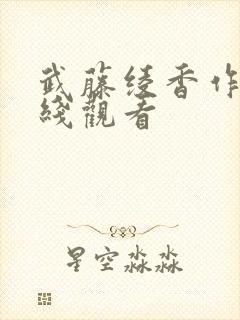 武藤绫香作
綫觀看
星空淼淼